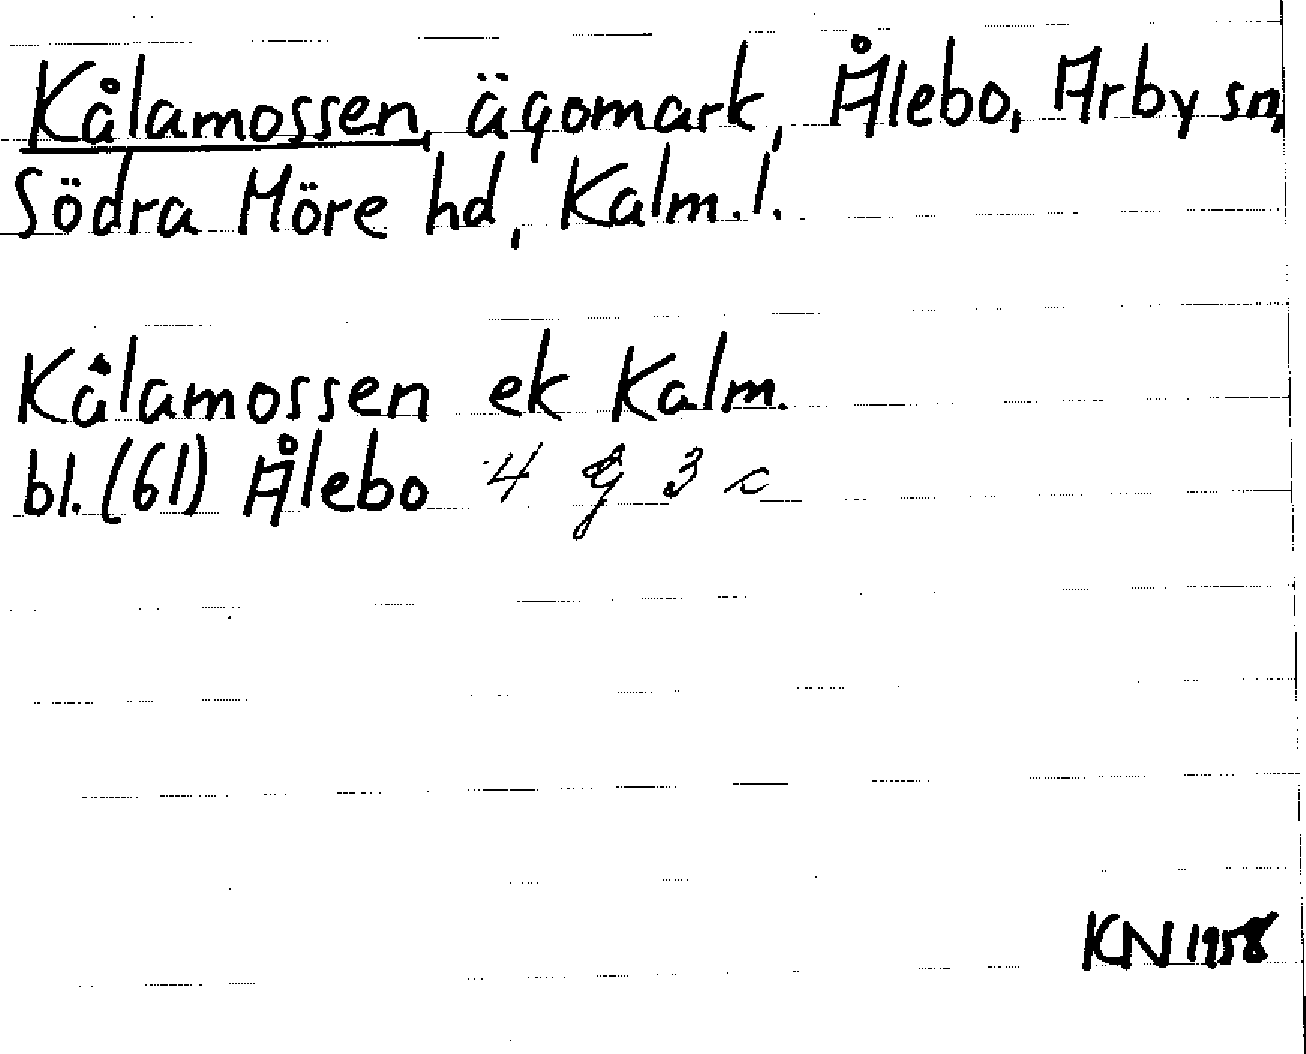 Kålamossen, ägomark, Ålebo, Arby sn,
Södra Möre hd, Kalm.l.
Kålamossen ek Kalm.
bl. (61) Ålebo 4 g 3 c
KN 1958